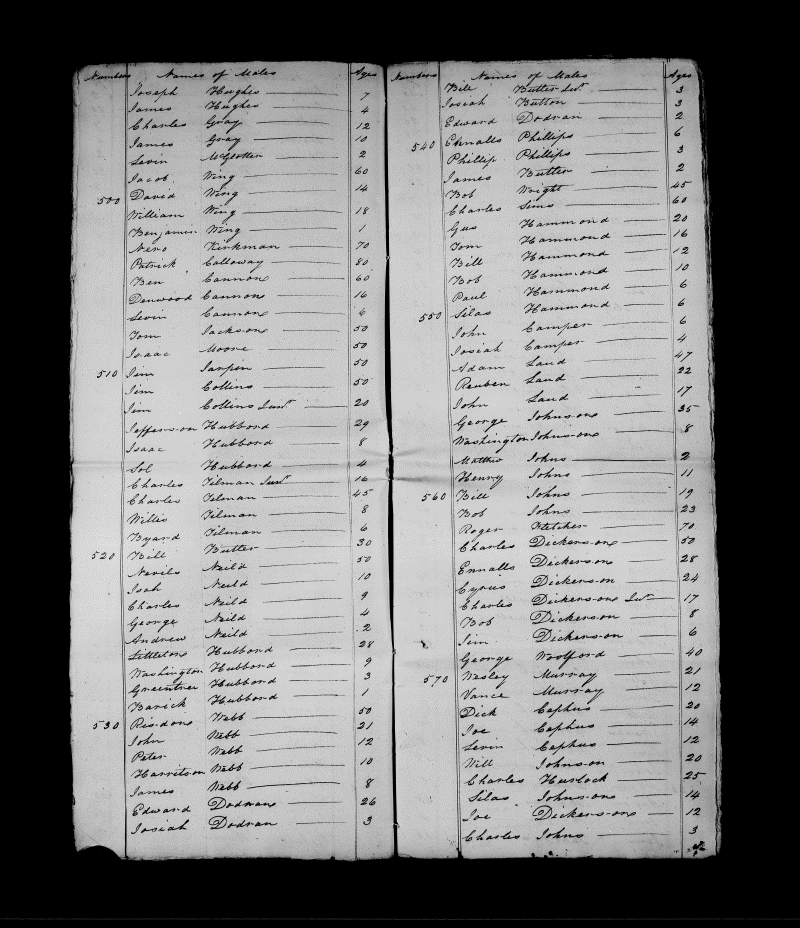 Numbers Names of Males Ages
Joseph Hughes 7
James Hughes 4
Charles Gray 12
James Gray 10
Levin McGlotter 2
Jacob Wing 60
500 David Wing 14
William Wing 18
Benjamin Wing 1
Nero Kirkman 70
Patrick Calloway 80
Ben Cannon 60
Denwood Cannon 16
Levin Cannon 6
Tom Jackson 50
Isaac Moore 50
510 Jim Jarpin 50
Jim Collins 50
Jim Collins Junr 20
Jefferson Hubbord 29
Isaac Hubbord 8
Sol Hubbord 4
Charles Tilman Junr 16
Charles Tilman 45
Willis Tilman 8
Byard Tilman 6
520 Bill Butter 30
Nevils Neild 50
Isah Neild 10
Charles Neild 9
George Neild 4
Andrew Neild 2
Littleton Hubbord 28
Washington Hubbord 9
Greentree Hubbord 3
Barick Hubbord 1
530 Risdon Webb 50
John Webb 21
Peter Webb 12
Harrison Webb 10
James Webb 8
Edward Dodran 26
Josiah Dodran 3
Numbers Names of Males Ages
Bill Butter Junr 3
Josiah Button 3
Edward Dodran 2
540 Ennalls Phillips 6
Phillip Phillips 3
James Butter 2
Bob Wright 45
Charles Sims 60
Gus Hammond 20
Tom Hammond 16
Bill Hammond 12
Bob Hammond 10
Paul Hammond 6
550 Silas Hammond 6
John Camper 6
Josiah Camper 4
Adam Land 47
Reuben Land 22
John Land 17
George Johnson 35
Washington Johnson 8
Matthew Johns 2
Henry Johns 11
560 Bill Johns 19
Bob Johns 23
Roger Fletcher 70
Charles Dickerson 50
Ennalls Dickerson 28
Cyrus Dickerson 24
Charles Dickerson Junr 17
Bob Dickerson 8
Jim Dickerson 6
George Woolford 40
570 Wesley Murray 21
Vance Murray 12
Dick Cephus 20
Joe Cephus 14
Levin Cephus 12
Will Johnson 20
Charles Hurlock 25
Silas Johnson 14
Joe Dickerson 12
Charles Johns 3